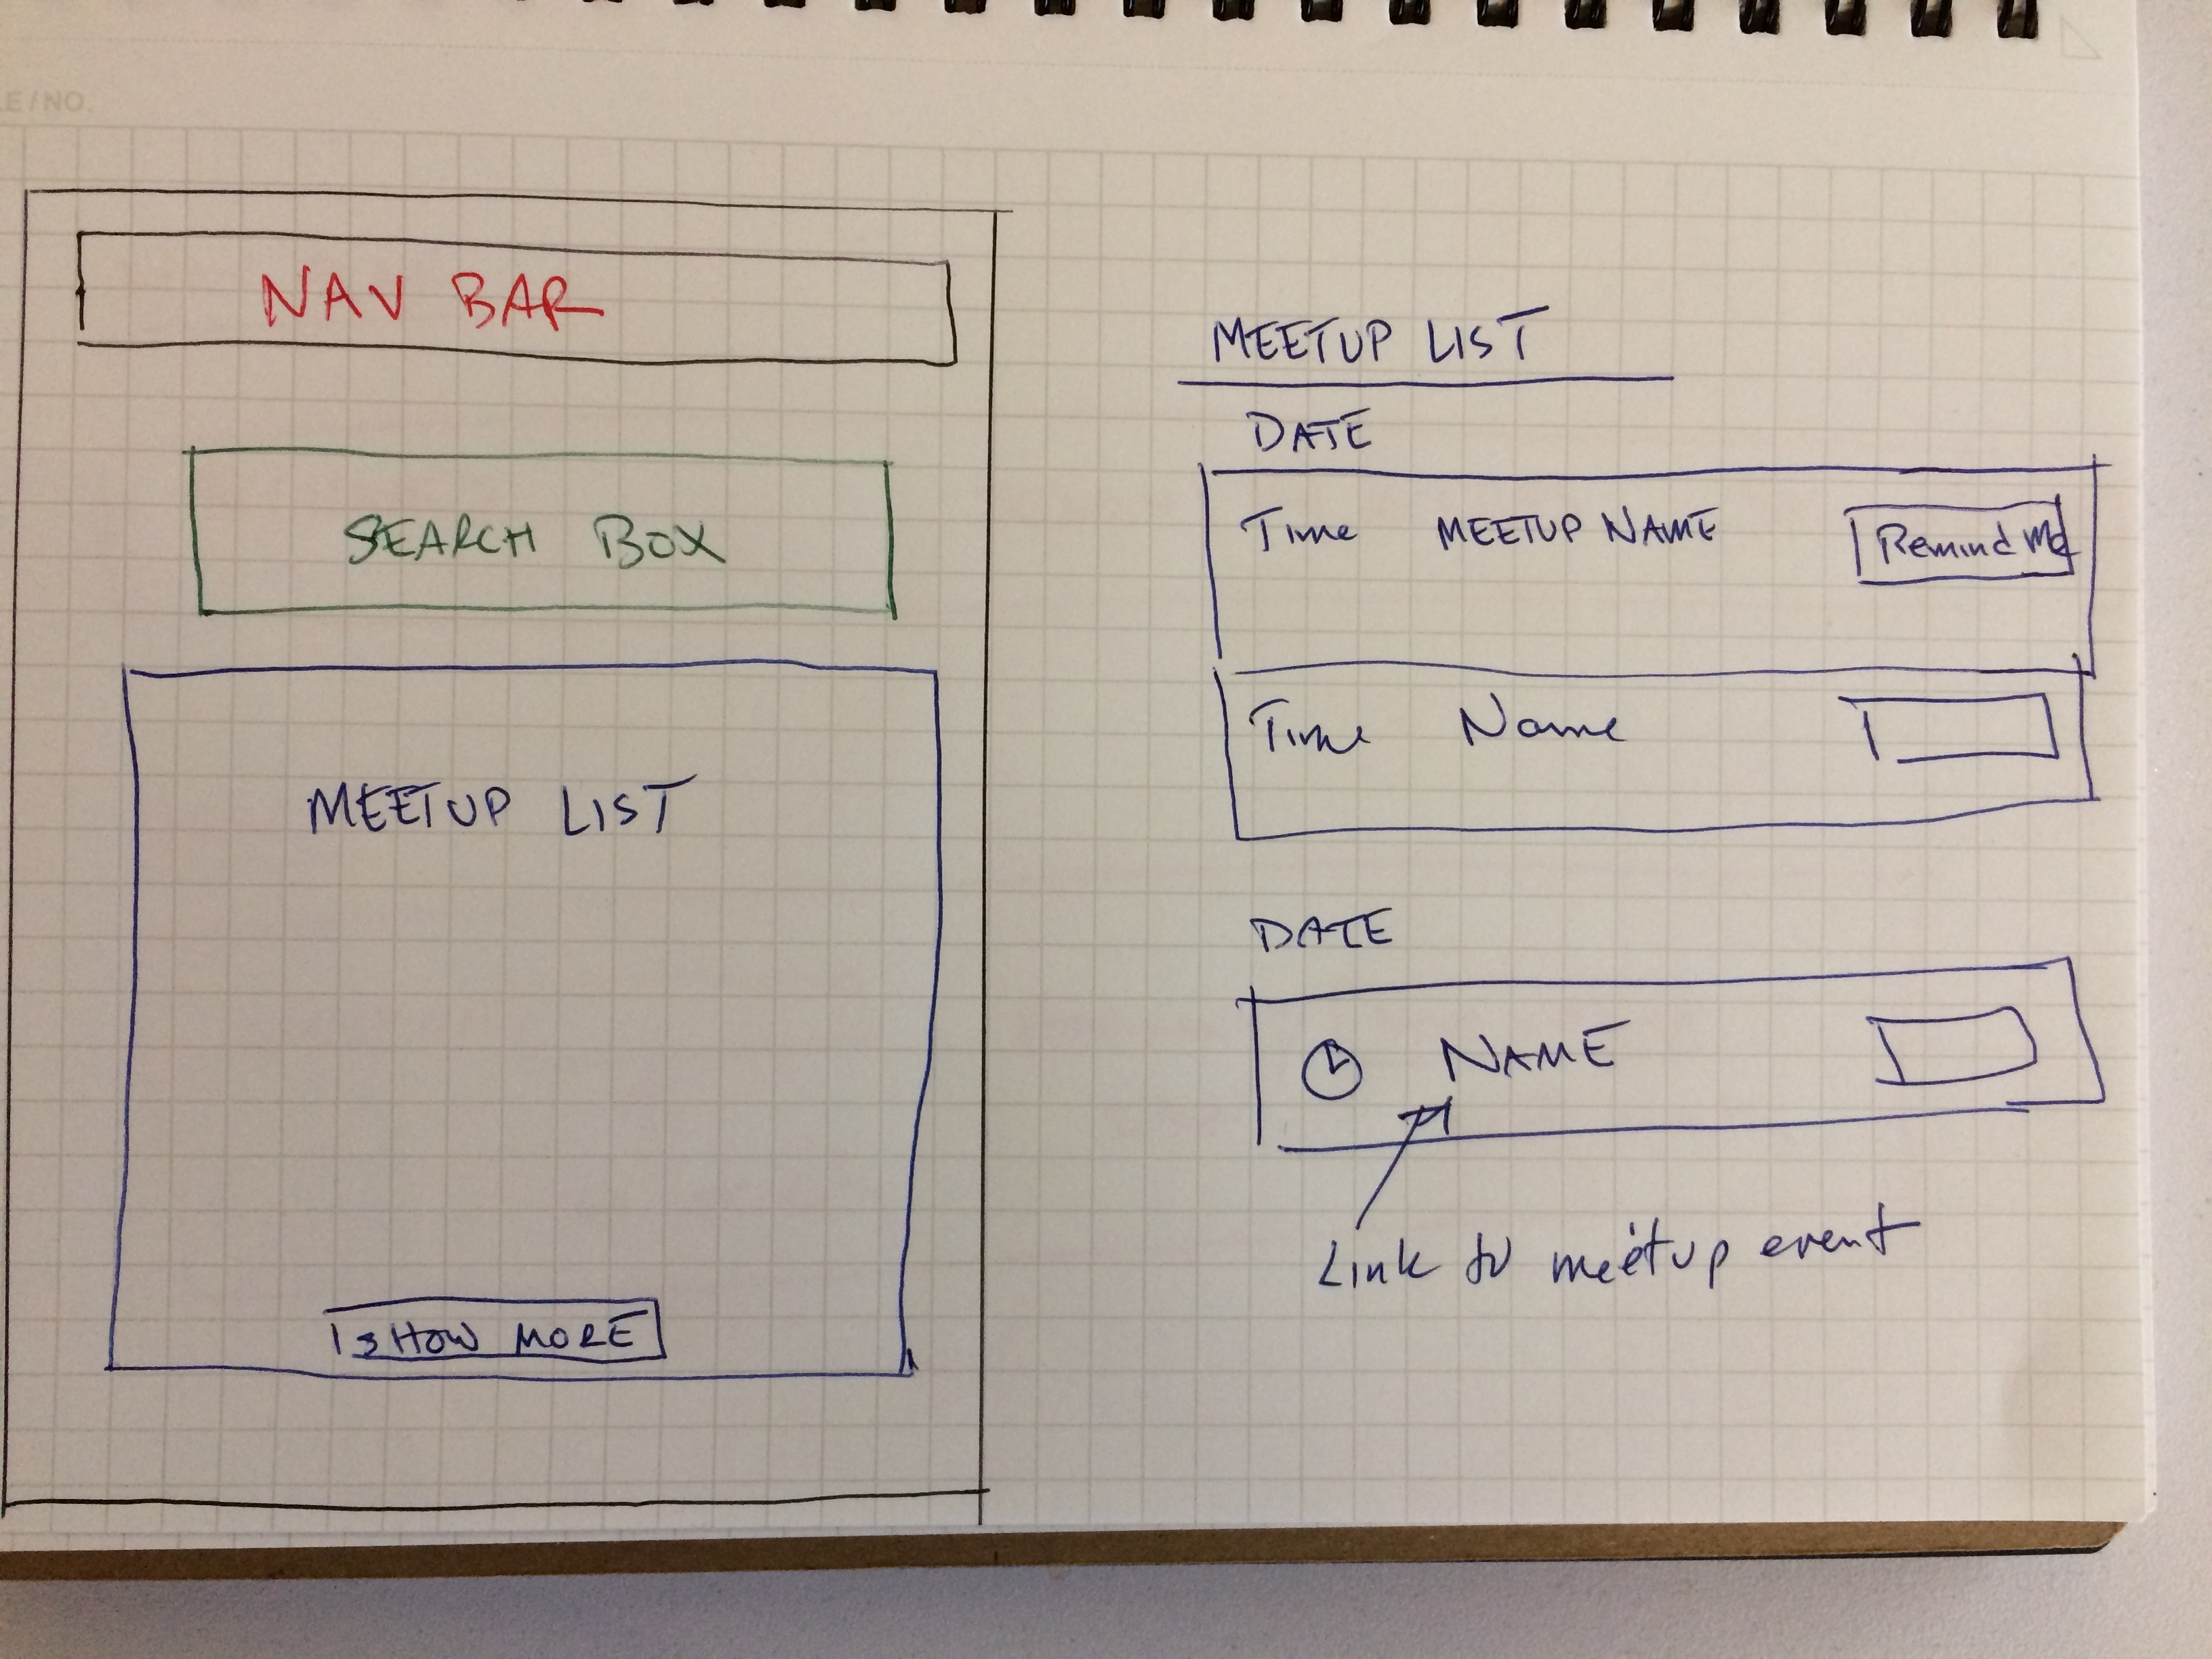 LE/NO.
NAV BAR
SEARCH BOX
MEETUP LIST
SHOW MORE
MEETUP LIST
DATE
Time MEETUP NAME Remind Me
Time Name
DATE
NAME
Link to meetup event